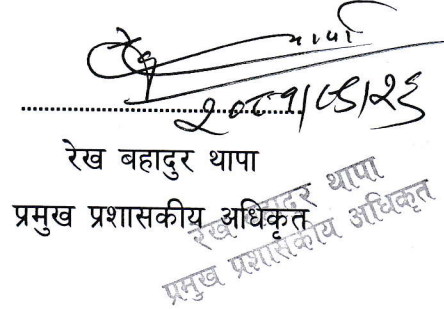 थापा
२०८१/०८/२६
रेख बहादुर थापा
प्रमुख प्रशासकीय अधिकृत
रेख बहादुर थापा
प्रमुख प्रशासकीय अधिकृत